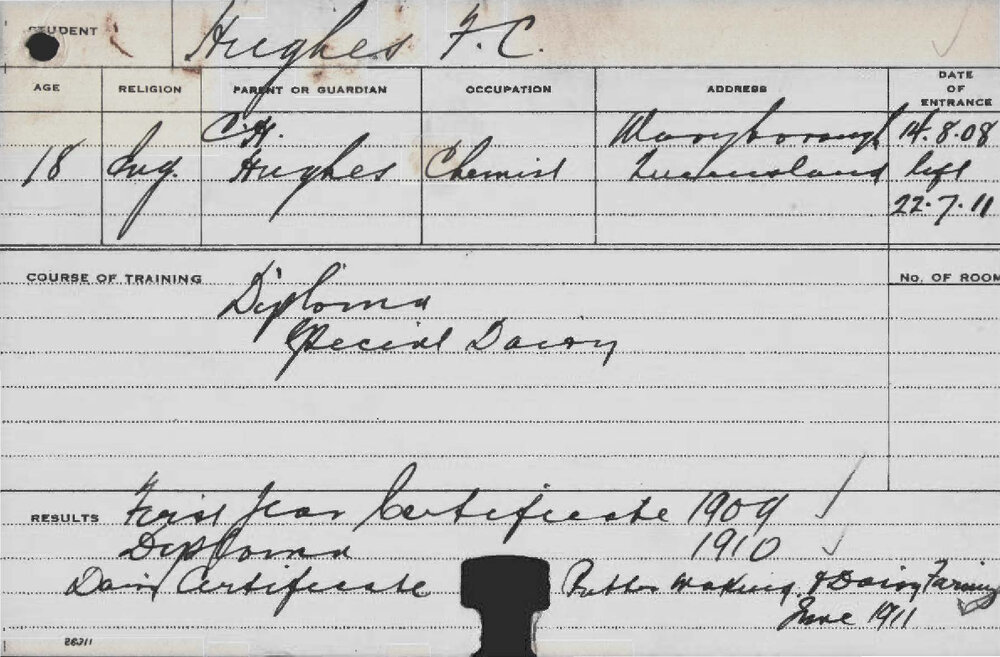 STUDENT Hughes F. C.
AGE RELIGION PARENT OR GUARDIAN OCCUPATION ADDRESS DATE OF ENTRANCE
C. H. Maryborough 14.8.08
18 Eng. Hughes Chemist Queensland left
22.7.11
COURSE OF TRAINING Diploma No. OF ROOM
Special Dairy
RESULTS First Year Certificate 1909
Diploma 1910
Dairy Certificate Butter Making & Dairy Farming
June 1911
26311